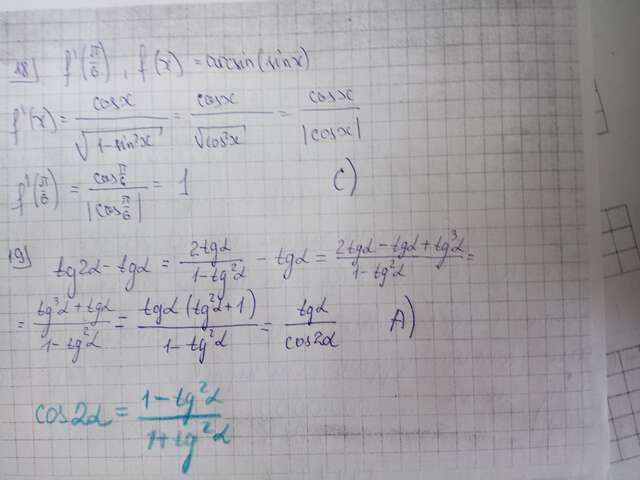 18) f'(π/6), f(x) = arcsin(sinx)
f'(x) = cosx/√(1-sin²x) = cosx/√(cos²x) = cosx/|cosx|
f'(π/6) = cos π/6 / |cos π/6| = 1 C)
19) tg2α - tgα = 2tgα/(1-tg²α) - tgα = (2tgα - tgα + tg³α)/(1-tg²α) =
= (tg³α + tgα)/(1-tg²α) = tgα(tg²α+1)/(1-tg²α) = tgα/cos2α A)
cos2α = (1-tg²α)/(1+tg²α)